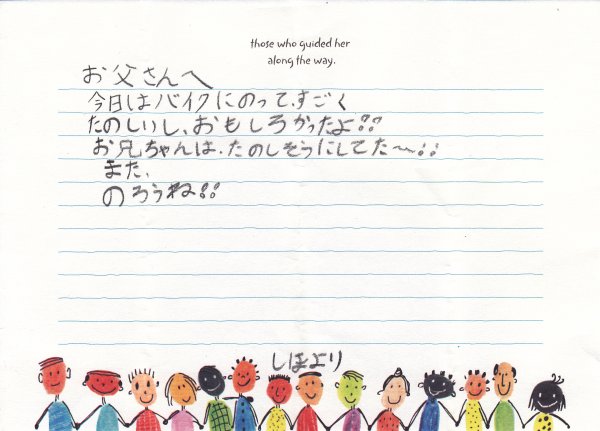 those who guided her
along the way.
お父さんへ
今日はバイクにのって、すごく
たのしいし、おもしろかったよ!!
お兄ちゃんは、たのしそうにしてた〜!!
また、
のろうね!!
しほより